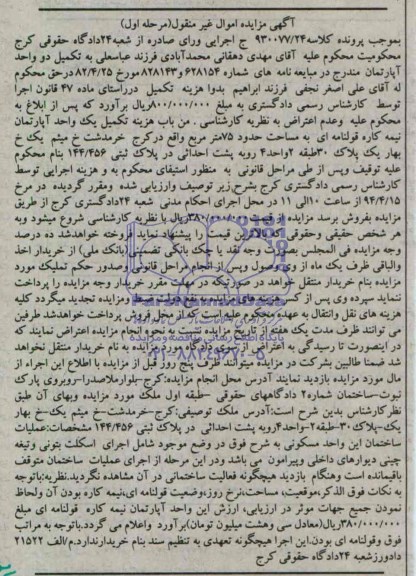 آگهی مزایده اموال غیر منقول(مرحله اول)
بموجب پرونده کلاسه۹۳۰۰۷۷/۲۴ ج اجرایی ورای صادره از شعبه۲۴دادگاه حقوقی کرج
محکومیت محکوم علیه آقای مهدی دهقانی محمدآبادی فرزند عباسعلی به تکمیل دو واحد
آپارتمان مندرج در مبایعه نامه های شماره ۶۲۸۱۵۴و۸۲۸۱۴۳مورخ ۸۲/۴/۲۵ درحق محکوم
له آقای علی اصغر نجفی فرزند ابراهیم بدوا هزینه تکمیل درراستای ماده ۴۷ قانون اجرا
توسط کارشناس رسمی دادگستری به مبلغ ۸۰۰/۰۰۰/۰۰۰ریال برآورد که پس از ابلاغ به
محکوم علیه وعدم اعتراض به نظریه کارشناسی . من باب هزینه تکمیل یک واحد آپارتمان
نیمه کاره قولنامه ای به مساحت حدود ۷۵متر مربع واقع درکرج خرمدشت خ میثم یک خ
بهار یک پلاک ۳۰طبقه ۲واحد۴ روبه پشت احداثی در پلاک ثبتی ۱۴۴/۴۵۶ بنام محکوم
علیه توقیف وپس از طی مراحل قانونی به منظور استیفای محکوم به و هزینه اجرایی توسط
کارشناس رسمی دادگستری کرج بشرح زیر توصیف وارزیابی شده ومقرر گردیده در مرخ
۹۴/۴/۱۵ از ساعت ۱۰الی ۱۱ در محل اجرای احکام مدنی شعبه ۲۴دادگستری کرج از طریق
مزایده بفروش برسد مزایده از قیمت ۳۸۰/۰۰۰/۰۰۰ریال با نظریه کارشناسی شروع میشود وبه
هر شخص حقیقی وحقوقی که بالاترین قیمت را پیشنهاد نماید فروخته خواهدشد ده درصد
وجه مزایده فی المجلس بصورت وجه نقد یا چک بانکی تضمینی(بانک ملی) از خریدار اخذ
والباقی ظرف یک ماه از وی وصول وپس از انجام مراحل قانونی وصدور حکم تملیک مورد
مزایده بنام خریدار منتقل خواهد در صورتیکه در مهلت مقرر خریدار وجه مزایده را پرداخت
ننماید سپرده وی پس از کسر هزینه های مزایده به نفع دولت ضبط ومزایده تجدید میگردد کلیه
هزینه های نقل وانتقال به عهده محکوم علیه است که از محل فروش پرداخت خواهدشد طرفین
می توانند ظرف مدت یک هفته از تاریخ مزایده نسبت به نحوه انجام مزایده اعتراض نمایند که
در اینصورت تا رسیدگی به اعتراض از سوی دادگاه مورد مزایده به نام خریدار منتقل نخواهد
شد ضمنا طالبین بشرکت در مزایده میتوانند ظرف پنج روز قبل از مزایده با اطلاع این اجراء از
مال مورد مزایده بازدید نمایند آدرس محل انجام مزایده:کرج-بلوارملاصدرا-روبروی پارک
نبوت-ساختمان شماره۲ دادگاههای حقوقی -طبقه اول ملک مورد مزایده وبهای آن طبق
نظرکارشناس بدین شرح است:آدرس ملک توصیفی:کرج-خرمدشت-خ میثم یک-خ بهار
یک-پلاک ۳۰-طبقه۲-واحد۴روبه پشت احداثی در پلاک ثبتی ۱۴۴/۴۵۶ مشخصات:عملیات
ساختمان این واحد مسکونی به شرح فوق در وضع موجود شامل اجرای اسکلت بتونی وتیغه
چینی دیوارهای داخلی وپیرامون می باشد ودر این مرحله از اجرای عملیات ساختمان متوقف
باقیمانده است وهنگام بازدید هیچگونه فعالیت ساختمانی در آن مشاهده نگردید.نظریه:باتوجه
به نکات فوق الذکر،موقعیت، مساحت،نرخ روز،وضعیت قولنامه ای،نیمه کاره بودن آن ولحاظ
نمودن جمیع جهات موثر در ارزیابی، ارزش این واحد آپارتمان نیمه کاره قولنامه ای مبلغ
۳۸۰/۰۰۰/۰۰۰ریال(معادل سی وهشت میلیون تومان)برآورد واعلام می گردد.باتوجه به مراتب
فوق وقولنامه ای بودن،این اجرا هیچگونه تعهدی به تنظیم سند بنام خریدارندارد.م/الف ۲۱۵۲۲
دادورزشعبه ۲۴دادگاه حقوقی کرج